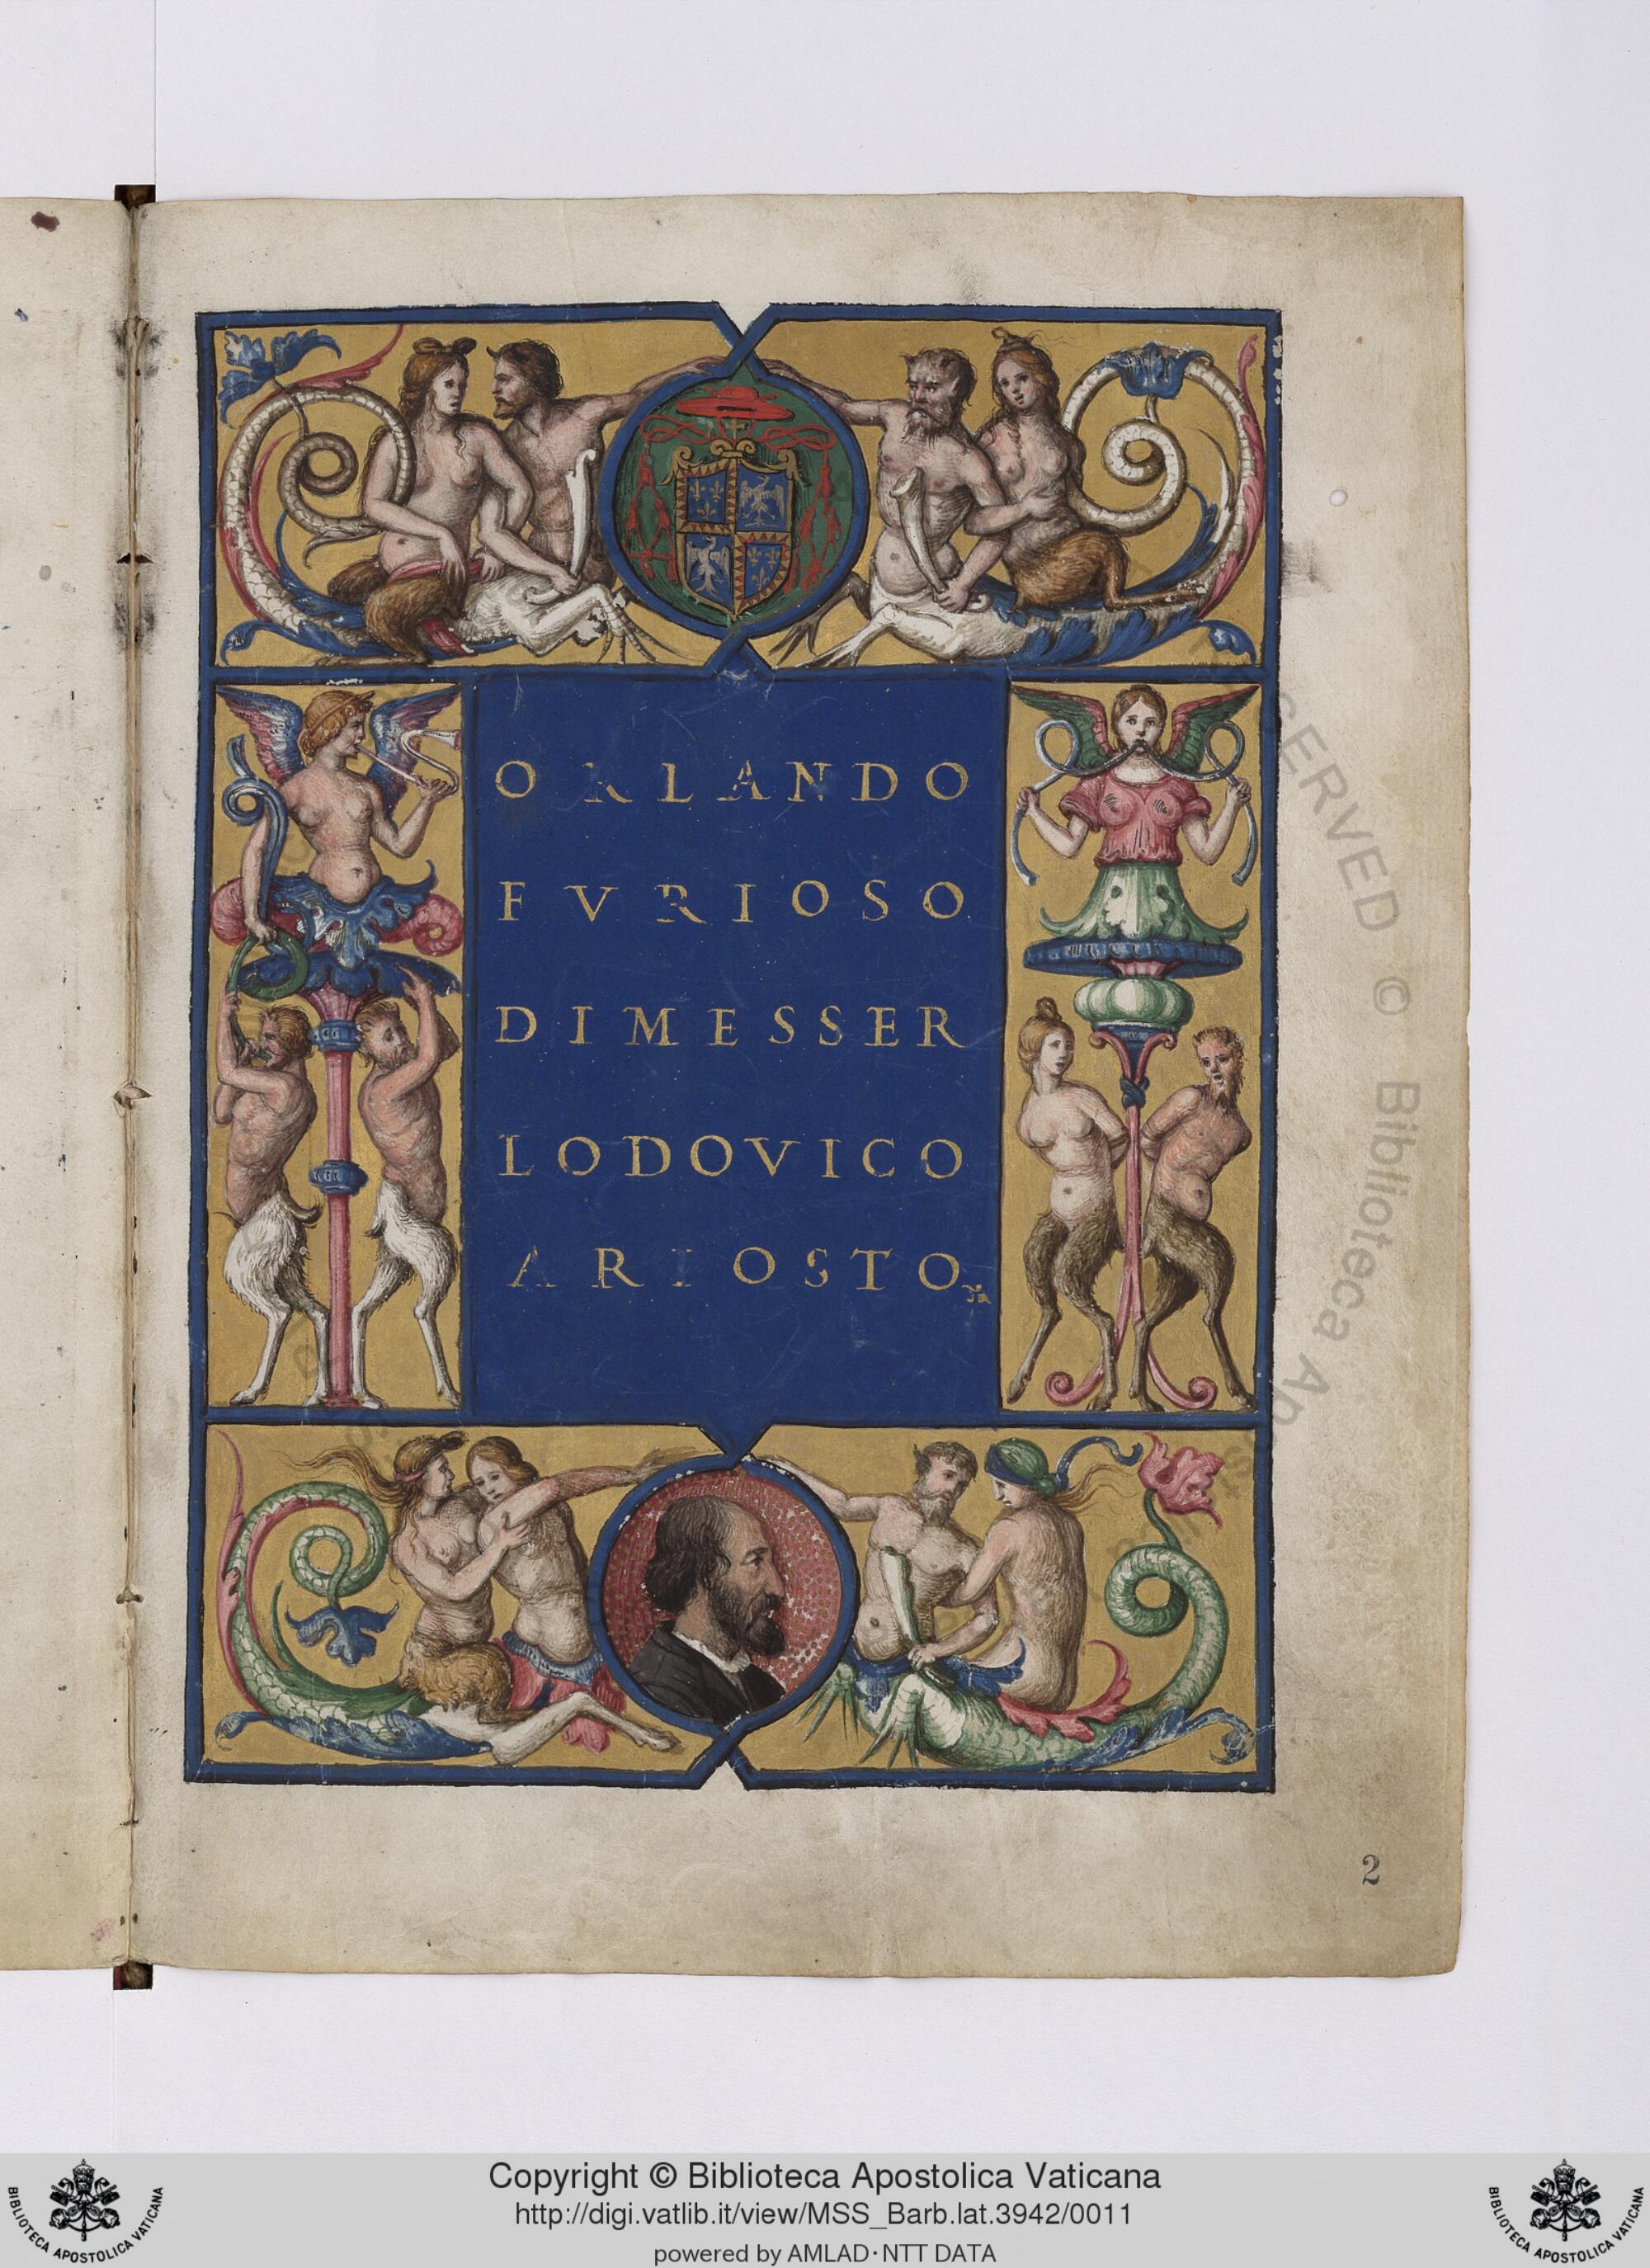 ORLANDO
FVRIOSO
DIMESSER
LODOVICO
ARIOSTO
2
SERVED © Biblioteca Ap
Copyright © Biblioteca Apostolica Vaticana
http://digi.vatlib.it/view/MSS_Barb.lat.3942/0011
powered by AMLAD·NTT DATA
BIBLIOTECA APOSTOLICA VATICANA
BIBLIOTECA APOSTOLICA VATICANA